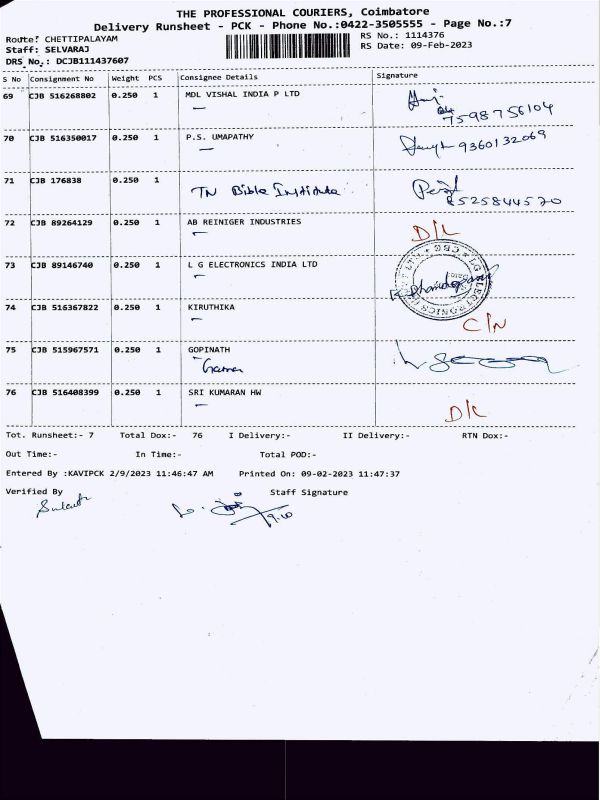 THE PROFESSIONAL COURIERS, Coimbatore
Delivery Runsheet - PCK - Phone No.:0422-3505555 - Page No.:7
Route: CHETTIPALAYAM
RS No.: 1114376
Staff: SELVARAJ
RS Date: 09-Feb-2023
DRS No.: DCJB111437607
S No Consignment No Weight PCS Consignee Details Signature
69 CJB 516268802 0.250 1 MDL VISHAL INDIA P LTD
7598756104
70 CJB 516350017 0.250 1 P.S. UMAPATHY
9360132069
71 CJB 176838 0.250 1 TN Bible Institute
8525844570
72 CJB 89264129 0.250 1 AB REINIGER INDUSTRIES D/L
73 CJB 89146740 0.250 1 L G ELECTRONICS INDIA LTD
74 CJB 516367822 0.250 1 KIRUTHIKA
C/N
75 CJB 515967571 0.250 1 GOPINATH
76 CJB 516408399 0.250 1 SRI KUMARAN HW
D/L
Tot. Runsheet:- 7 Total Dox:- 76 I Delivery:- II Delivery:- RTN Dox:-
Out Time:- In Time:- Total POD:-
Entered By :KAVIPCK 2/9/2023 11:46:47 AM Printed On: 09-02-2023 11:47:37
Verified By Staff Signature